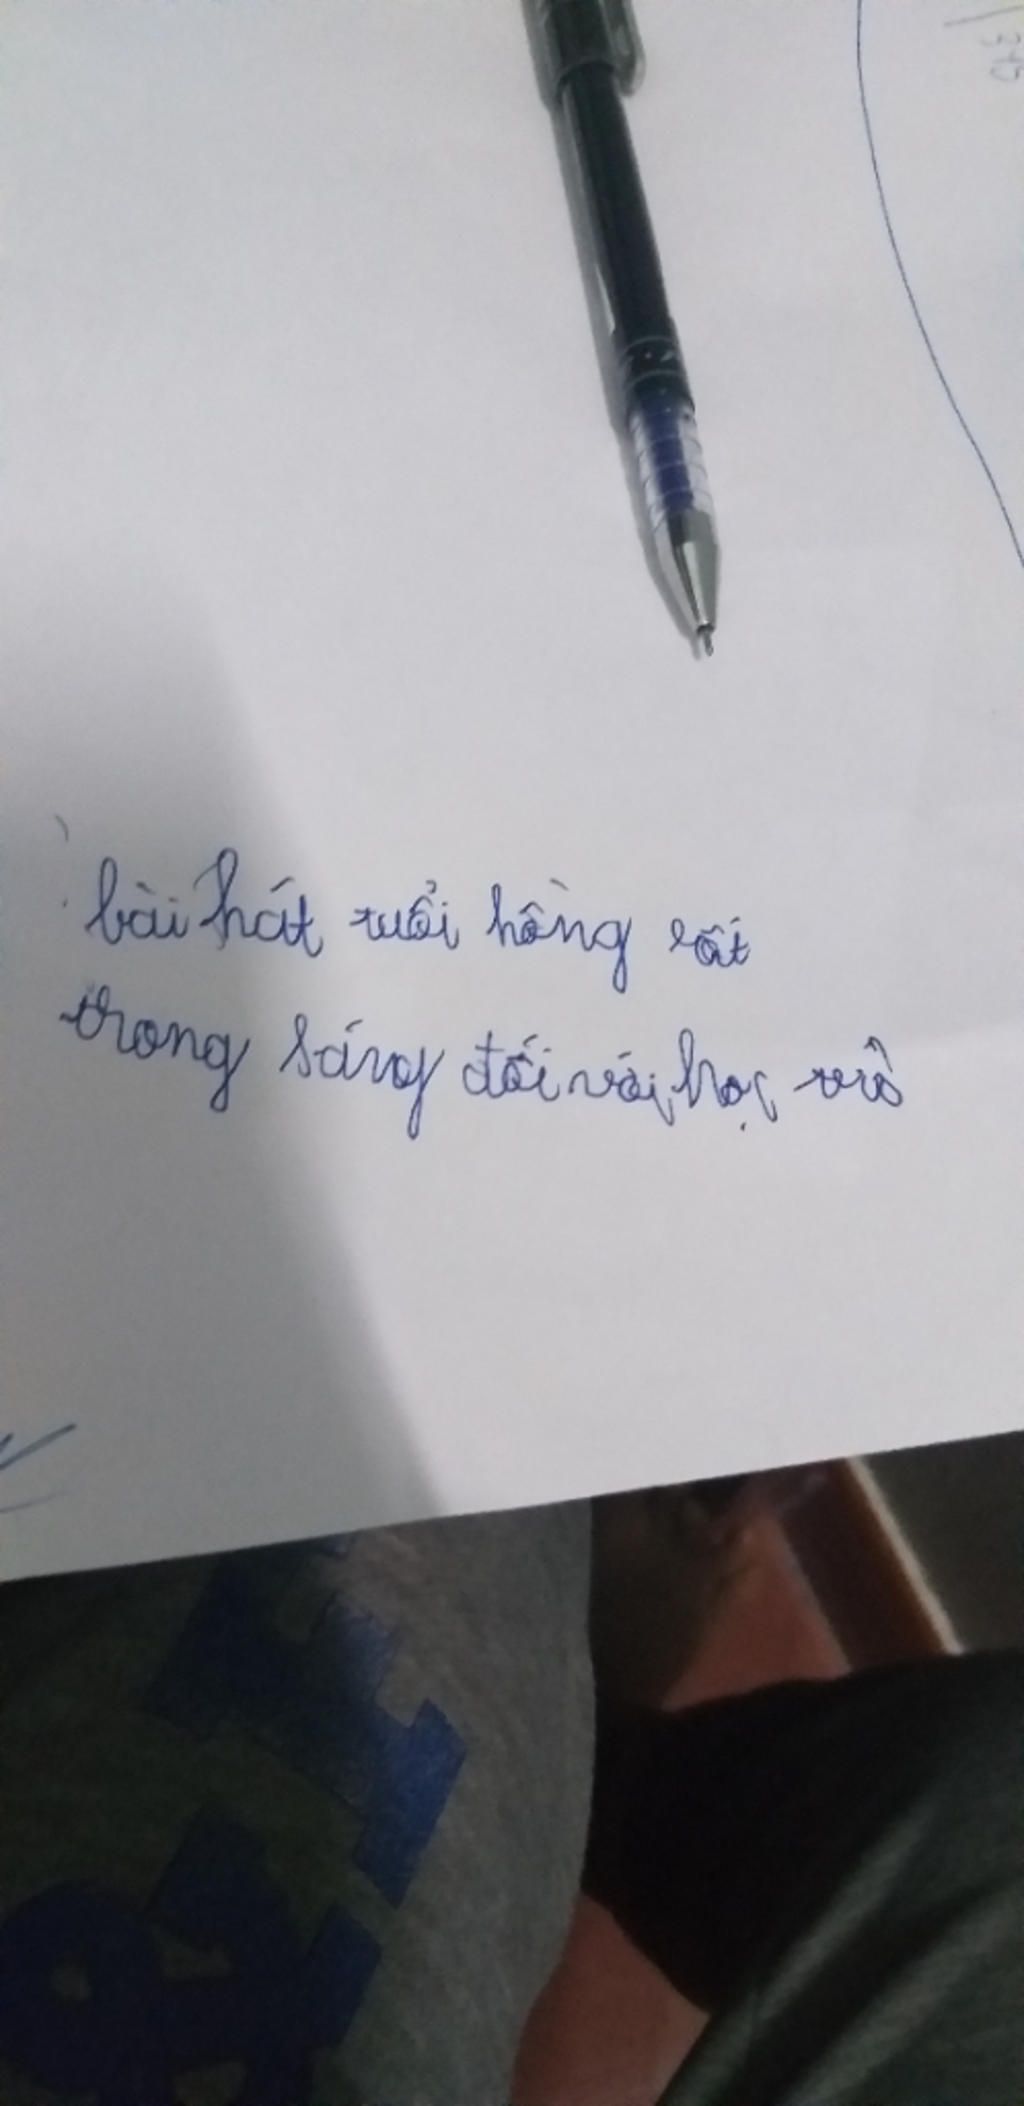 bài hát tuổi hồng rất
trong sáng đối với học trò